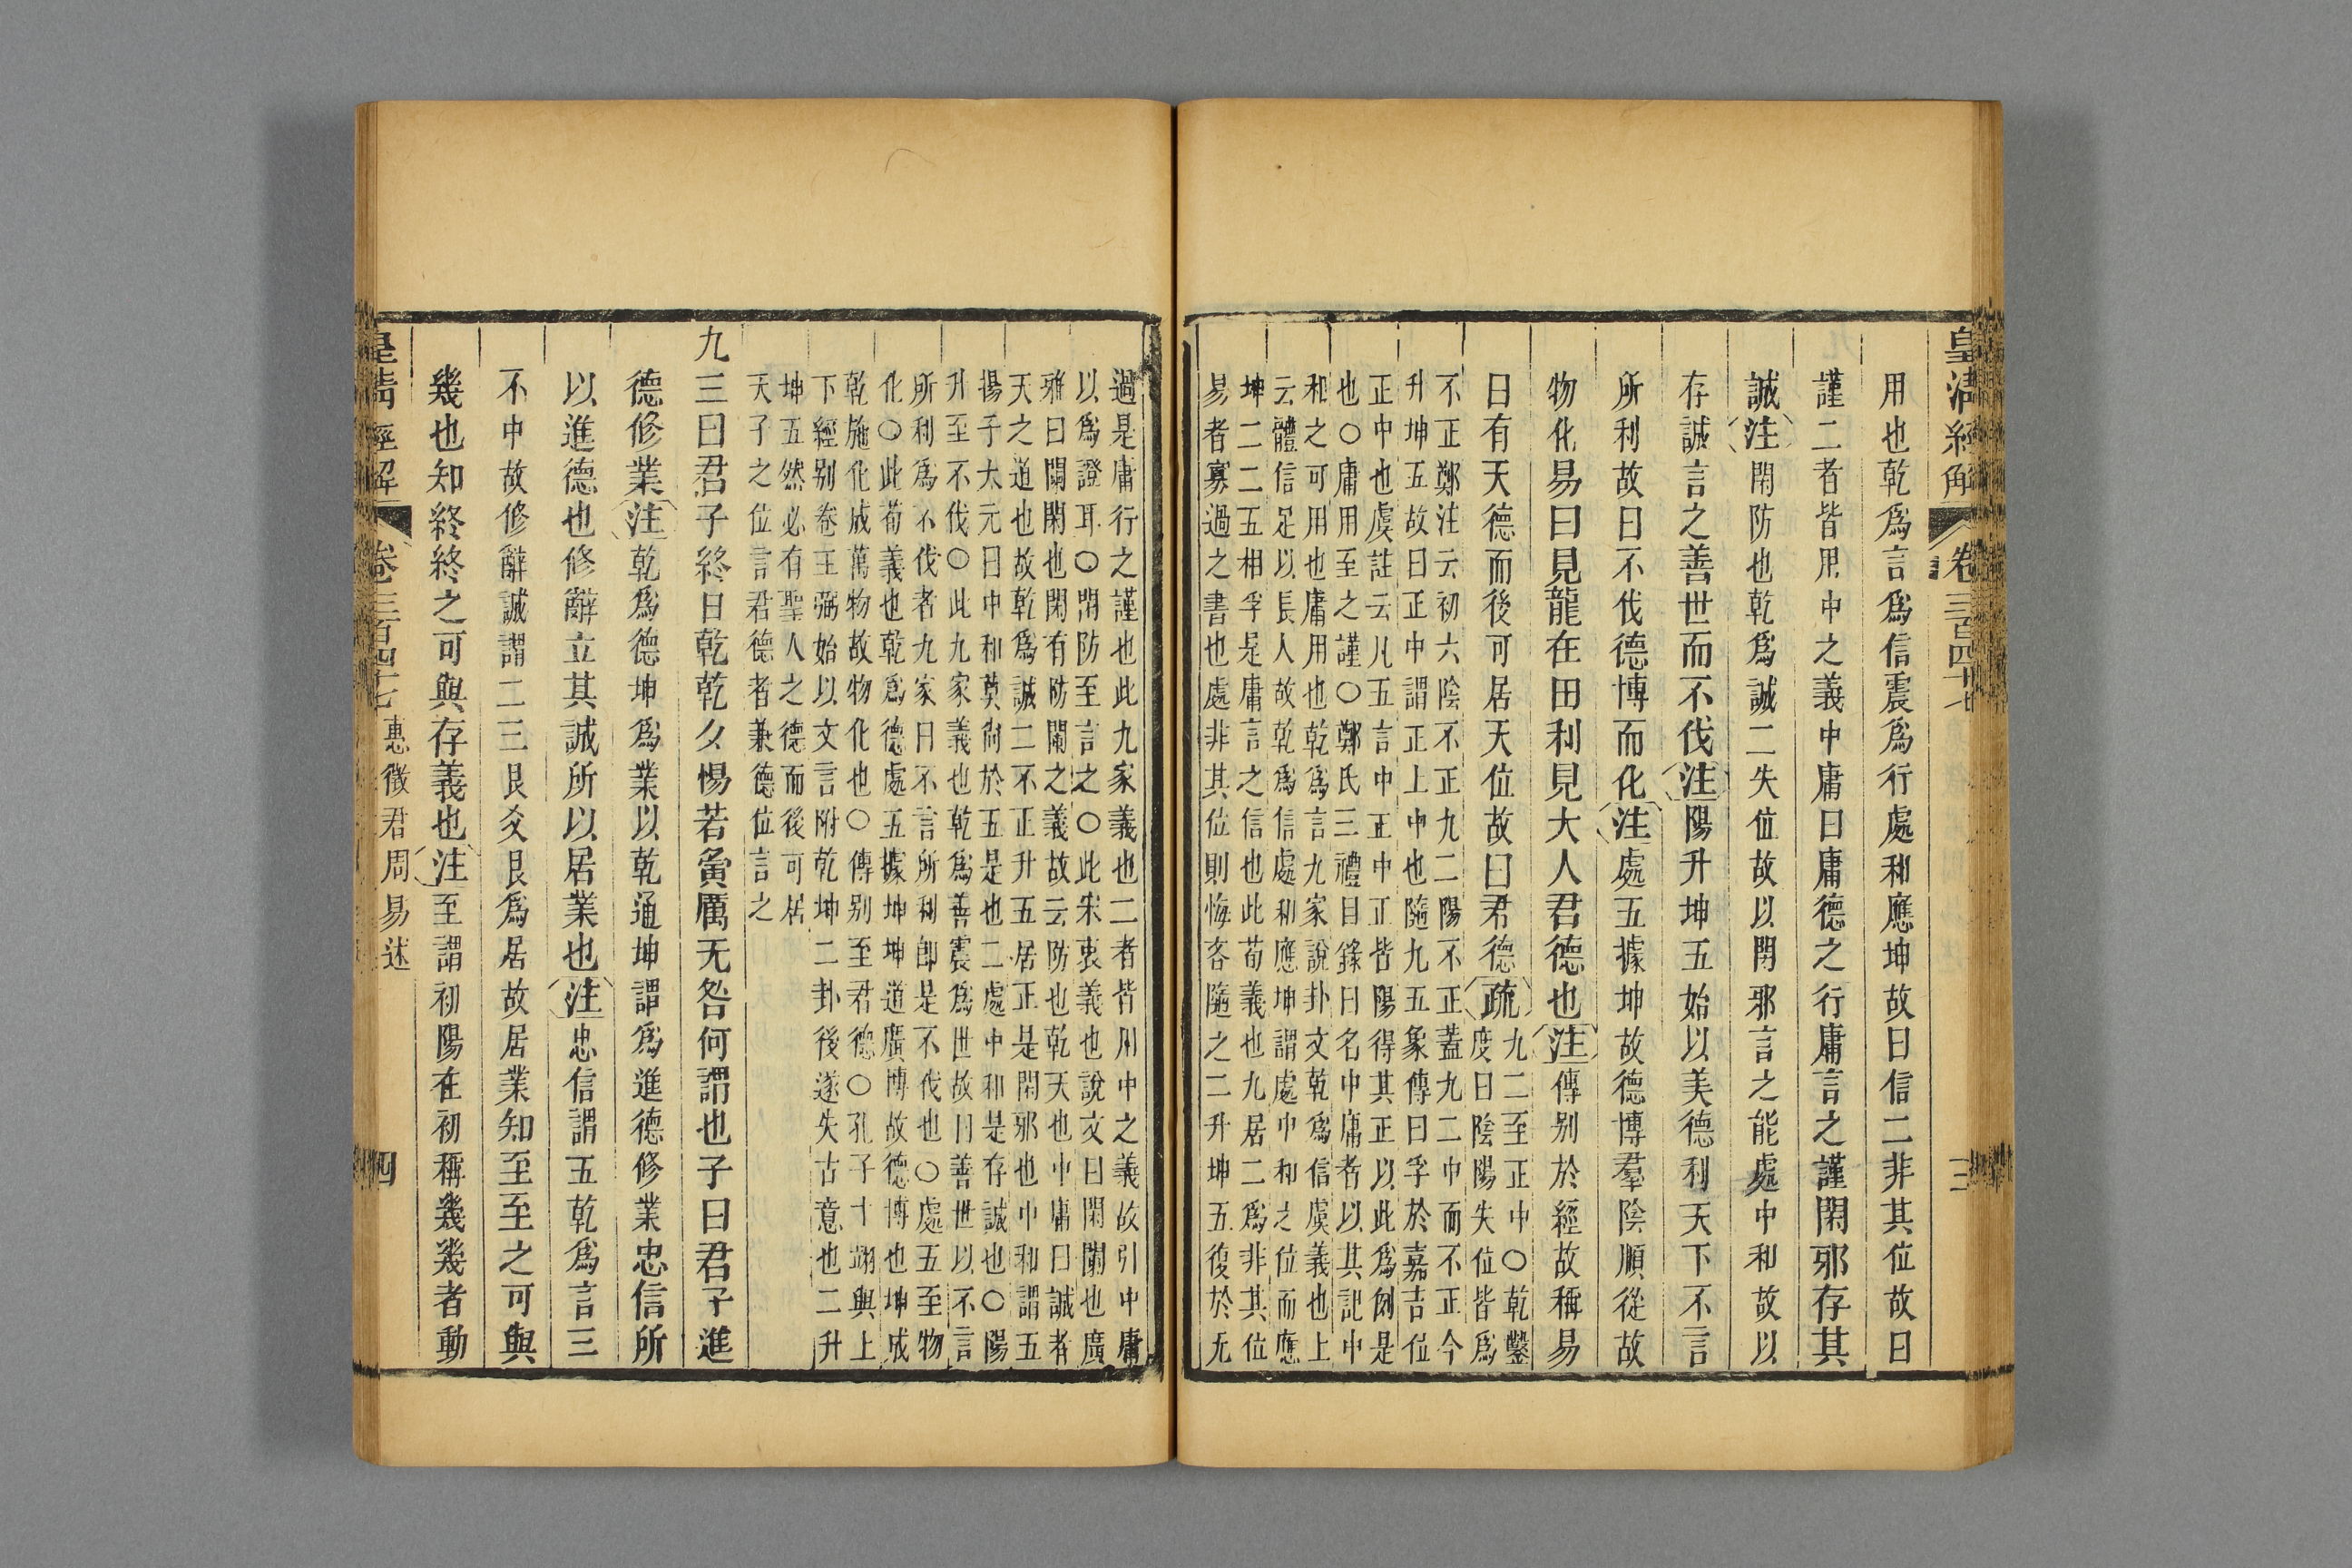 皇清經解
卷三百四十七
三
用也乾爲言爲信震爲行處和應坤故曰信二非其位故曰
謹二者皆用中之義中庸曰庸德之行庸言之謹閑邪存其
誠注閑防也乾爲誠二失位故以閑邪言之能處中和故以
存誠言之善世而不伐注陽升坤五始以美德利天下不言
所利故曰不伐德博而化注處五據坤故德博羣陰順從故
物化易曰見龍在田利見大人君德也注傳別於經故稱易
曰有天德而後可居天位故曰君德疏九二至正中○乾鑿
度曰陰陽失位皆爲
不正鄭注云初六陰不正九二陽不正蓋九二中而不正今
升坤五故曰正中謂正上中也隨九五象傳曰孚於嘉吉位
正中也虞註云凡五言中正中正皆陽得其正以此爲例是
也○庸用至之謹○鄭氏三禮目錄曰名中庸者以其記中
和之可用也庸用也乾爲言九家說卦文乾爲信虞義也上
云體信足以長人故乾爲信處和應坤謂處中和之位而應
坤二二五相孚是庸言之信也此荀義也九居二爲非其位
易者寡過之書也處非其位則悔吝隨之二升坤五復於无
過是庸行之謹也此九家義也二者皆用中之義故引中庸
以爲證耳○閑防至言之○此宋衷義也說文曰閑闌也廣
雅曰闌閑也閑有防闌之義故云防也乾天也中庸曰誠者
天之道也故乾爲誠二不正升五居正是閑邪也中和謂五
揚子太元曰中和莫尙於五是也二處中和是存誠也○陽
升至不伐○此九家義也乾爲善震爲世故曰善世以不言
所利爲不伐者九家曰不言所利卽是不伐也○處五至物
化○此荀義也乾爲德處五據坤坤道廣博故德博也坤成
乾施化成萬物故物化也○傳別至君德○孔子十翊與上
下經別卷王弼始以文言附乾坤二卦後遂失古意也二升
坤五然必有聖人之德而後可居
天子之位言君德者兼德位言之
九三曰君子終日乾乾夕惕若夤厲无咎何謂也子曰君子進
德修業注乾爲德坤爲業以乾通坤謂爲進德修業忠信所
以進德也修辭立其誠所以居業也注忠信謂五乾爲言三
不中故修辭誠謂二三艮爻艮爲居故居業知至至之可與
幾也知終終之可與存義也注至謂初陽在初稱幾幾者動
皇清經解
卷三百四十七
惠徵君周易述
四